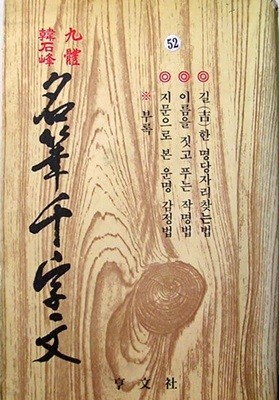 52
九體
韓石峰
名筆千字文
◎ 길(吉)한 명당자리찾는법
◎ 이름을 짓고 푸는 작명법
◎ 지문으로 본 운명 감정법
※ 부록
亨文社